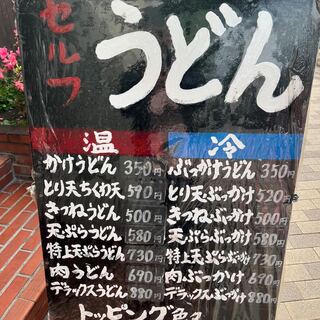 セルフ
うどん
温
かけうどん 350円
とり天ちくわ天 590円
きつねうどん 500円
天ぷらうどん 580円
特上天ぷらうどん 730円
肉うどん 690円
デラックスうどん 880円
冷
ぶっかけうどん 350円
とり天ぶっかけ 520円
きつねぶっかけ 500円
天ぷらぶっかけ 580円
特上天ぷらぶっかけ 730円
肉ぶっかけ 690円
デラックスぶっかけ 880円
トッピング色々